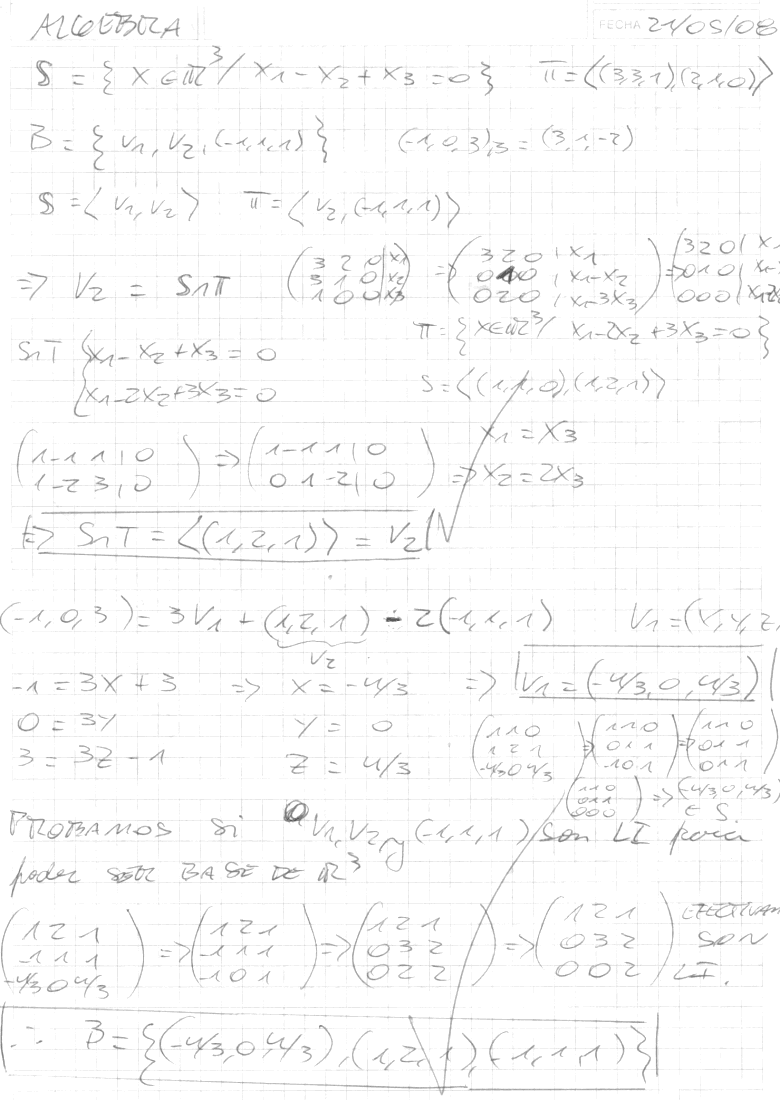 ALGEBRA FECHA 21/05/08
S = { X ∈ ℝ³ / x1 - x2 + x3 = 0 } π = ⟨(3,3,1),(2,1,0)⟩
B = { v1, v2, (-1,1,1) } (-1,0,3)B = (3,1,-2)
S = ⟨ v1, v2 ⟩ π = ⟨ v2, (-1,1,1) ⟩
⇒ V2 = S∩π
( 3 2 0 | x1
3 1 0 | x2
1 0 0 | x3 ) ⇒ ( 3 2 0 | x1
0 1 0 | x1-x2
0 2 0 | x1-3x3 ) ⇒ ( 3 2 0 |
0 1 0 |
0 0 0 |
π = { X ∈ ℝ³ / x1 - 2x2 + 3x3 = 0 }
S∩π { x1 - x2 + x3 = 0
x1 - 2x2 + 3x3 = 0
S = ⟨(1,1,0),(1,2,1)⟩
( 1 -1 1 | 0
1 -2 3 | 0 ) ⇒ ( 1 -1 1 | 0
0 1 -2 | 0 ) ⇒ x1 = x3
x2 = 2x3
⇒ S∩π = ⟨(1,2,1)⟩ = V2
(-1,0,3) = 3V1 + (1,2,1) - 2(-1,1,1)
V2
-1 = 3x + 3 ⇒ x = -4/3 ⇒ V1 = (-4/3, 0, 4/3)
0 = 3y y = 0
3 = 3z - 1 z = 4/3
( 1 1 0
1 2 1
-4/3 0 4/3 ) ⇒ ( 1 1 0
0 1 1
-1 0 1 ) ⇒ ( 1 1 0
0 1 1
0 1 1 )
( 1 1 0
0 1 1
0 0 0 ) ⇒ (-4/3, 0, 4/3)
∈ S
PROBAMOS SI V1, V2 y (-1,1,1) son LI para
poder SER BASE DE ℝ³
( 1 2 1
-1 1 1
-4/3 0 4/3 ) ⇒ ( 1 2 1
-1 1 1
-1 0 1 ) ⇒ ( 1 2 1
0 3 2
0 2 2 ) ⇒ ( 1 2 1
0 3 2
0 0 2 )
SON
LI.
∴ B = {(-4/3, 0, 4/3), (1,2,1), (-1,1,1)}